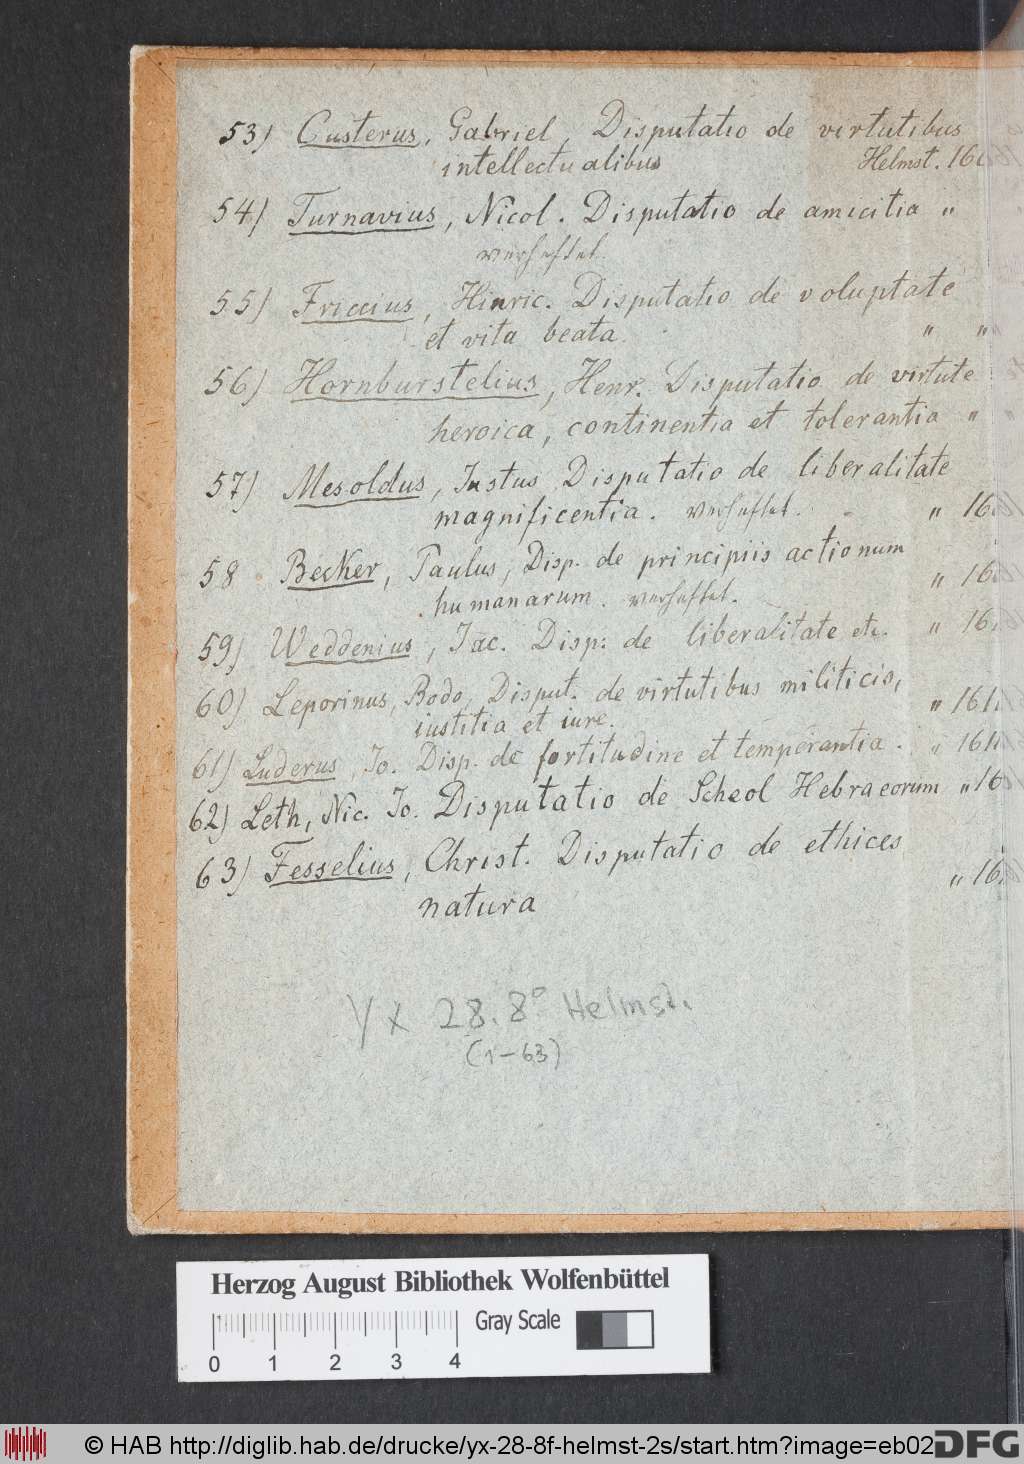 53) Custerus, Gabriel, Disputatio de virtutibus
intellectualibus Helmst. 160
54) Turnavius, Nicol. Disputatio de amicitia "
verheftet.
55) Friccius, Hinric. Disputatio de voluptate
et vita beata. " "
56) Hornburstelius, Henr. Disputatio de virtute
heroica, continentia et tolerantia "
57) Mesoldus, Justus Disputatio de liberalitate
magnificentia. verheftet. " 16
58 Becker, Paulus, Disp. de principiis actionum
humanarum. verheftet. " 16
59) Weddenius, Jac. Disp: de liberalitate etc. " 16
60) Leporinus, Bodo, Disput. de virtutibus militicis,
iustitia et iure. " 161
61) Luderus, Jo. Disp. de fortitudine et temperantia. " 161
62) Leth, Nic. Jo. Disputatio de Scheol Hebraeorum " 16
63) Fesselius, Christ. Disputatio de ethices
natura " 16
Yx 28. 8° Helmst.
(1-63)
Herzog August Bibliothek Wolfenbüttel
Gray Scale
0 1 2 3 4
© HAB http://diglib.hab.de/drucke/yx-28-8f-helmst-2s/start.htm?image=eb02
DFG